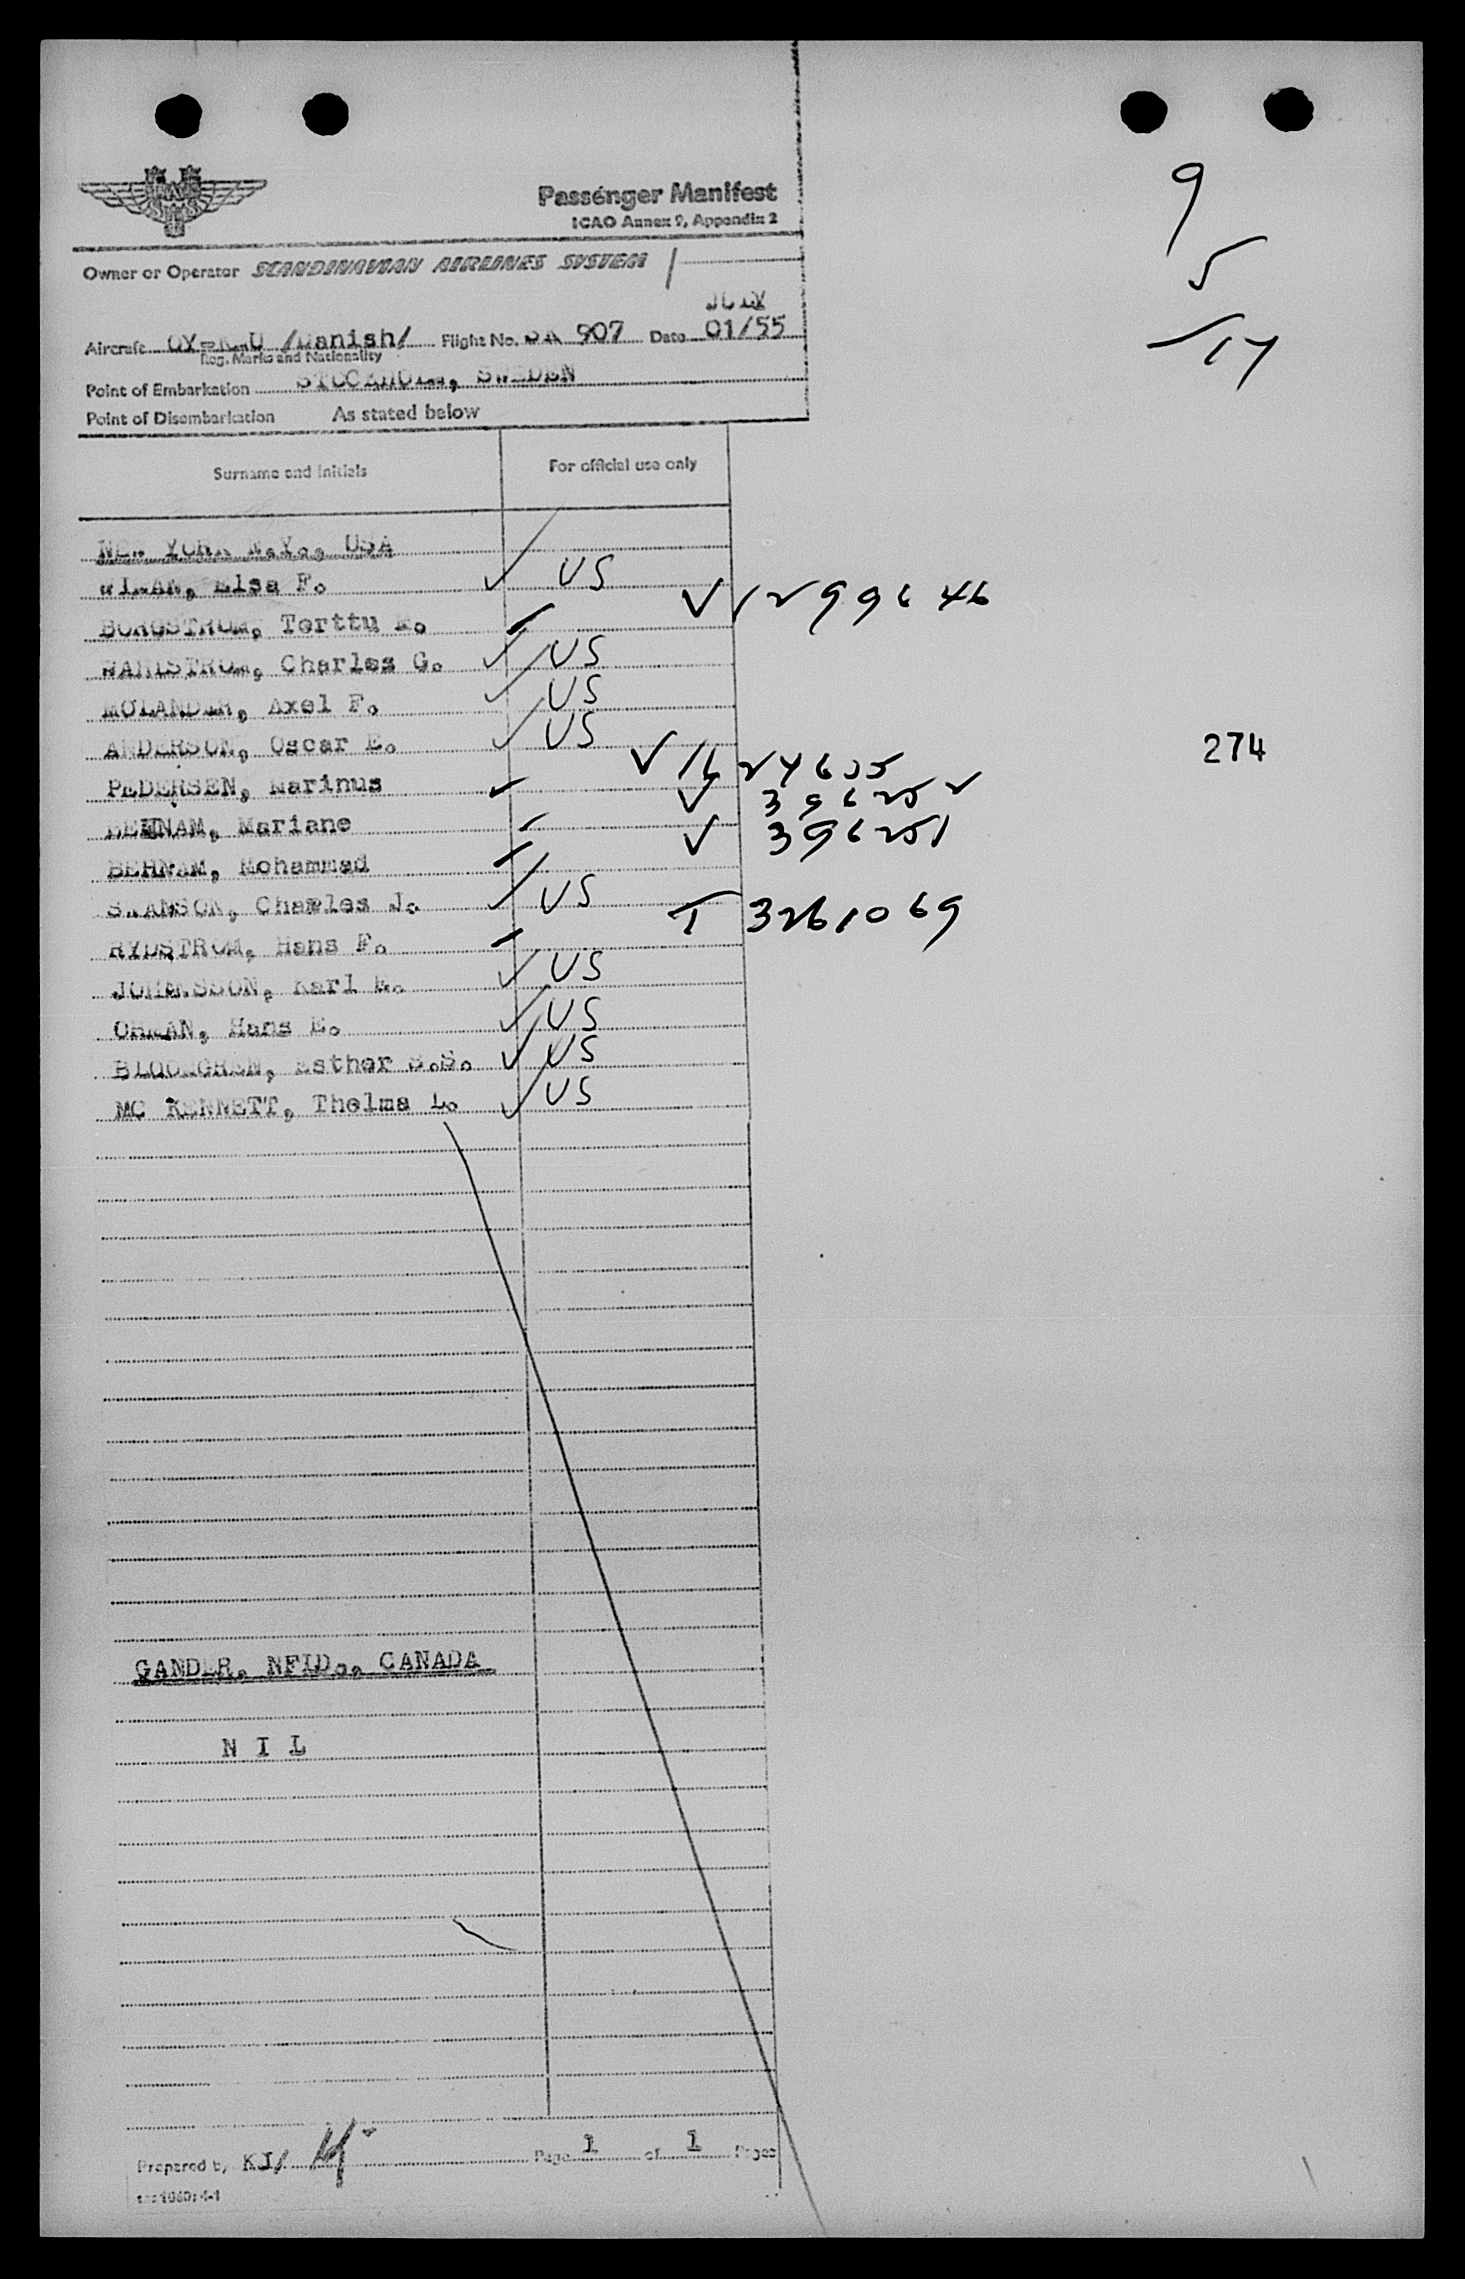 Passenger Manifest
ICAO Annex 9, Appendix 2
Owner or Operator SCANDINAVIAN AIRLINES SYSTEM
JULY
Aircraft /Danish/ Flight No. SK 907 Date 01/55
Reg. Marks and Nationality
Point of Embarkation STOCKHOLM, SWEDEN
Point of Disembarkation As stated below
9
5
14
Surname and initials For official use only
NEW YORK N.Y., USA
Elsa F. US
BORGSTROM, Terttu V 1299646
Charles G. US
MOLANDER, Axel F. US
ANDERSON, Oscar E. US
274
PEDERSEN, Marinus V 1624635
BEHNAM, Mariane V 396252
BEHNAM, Mohammad V 396251
SWANSON, Charles J. US
RYDSTROM, Hans F. T 3261069
JOHANSSON, Karl E. US
OHMAN, Hans E. US
BLOOMGREN, Esther S.S. US
MC KENNETT, Thelma L. US
GANDER, NFLD., CANADA
N I L
Prepared by KJ/ Page 1 of 1 Pages